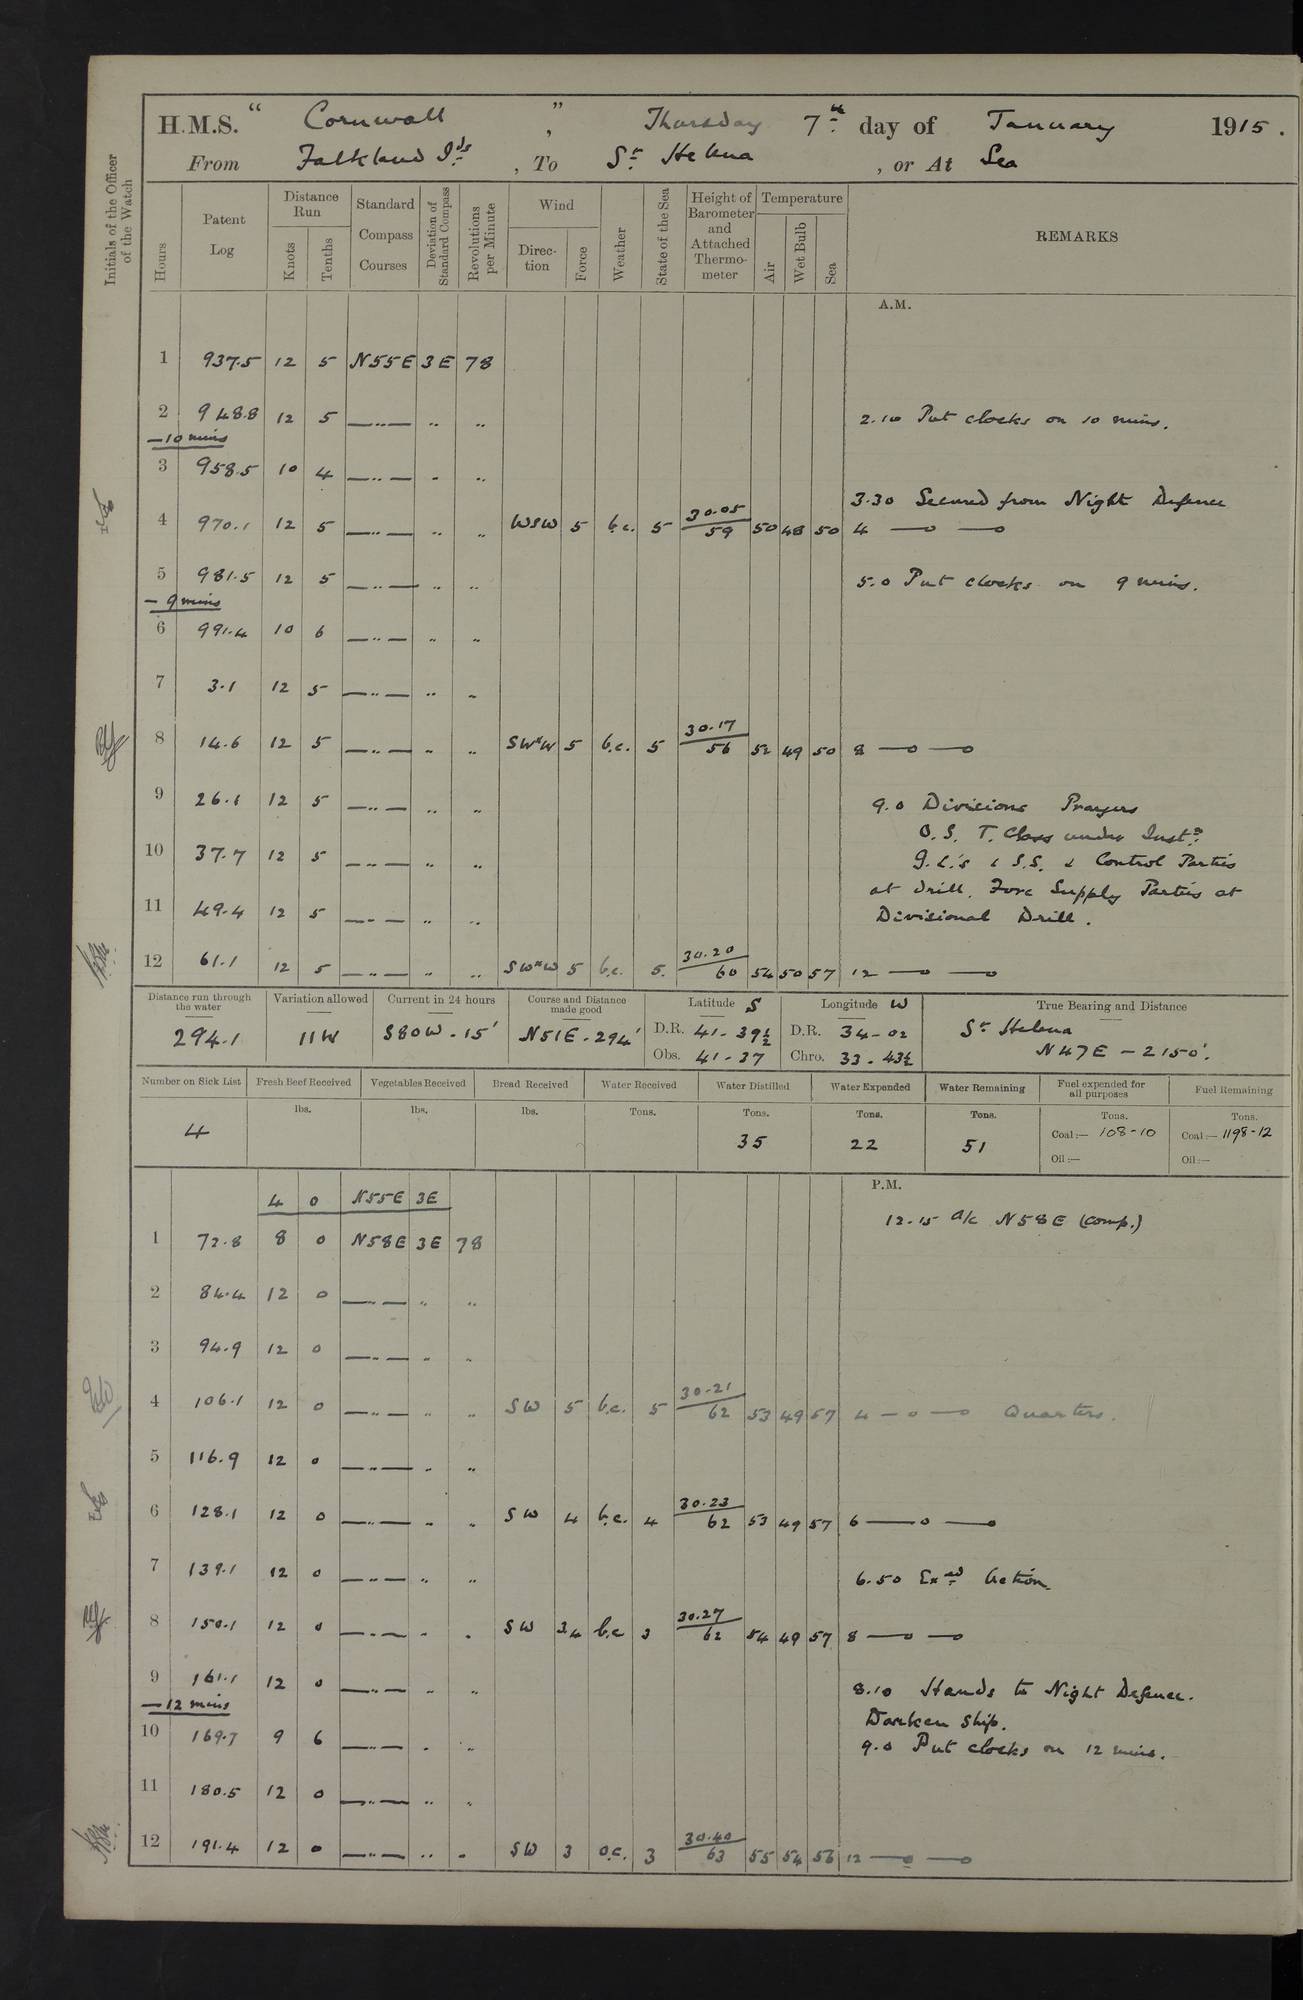 H.M.S. " Cornwall ", Thursday 7th day of January 1915.
From Falkland Ids, To St Helena, or At Sea
Initials of the Officer of the Watch
Hours
Patent Log
Distance Run
Knots
Tenths
Standard Compass Courses
Deviation of Standard Compass
Revolutions per Minute
Wind
Direction
Force
Weather
State of the Sea
Height of Barometer and Attached Thermometer
Temperature
Air
Wet Bulb
Sea
REMARKS
A.M.
1 937.5 12 5 N55E 3E 78
2 948.8 12 5 —„— „ „ 2.10 Put clocks on 10 mins.
—10 mins
3 958.5 10 4 —„— „ „
3.30 Secured from Night Defence
4 970.1 12 5 —„— „ „ WSW 5 b.c. 5 30.05 59 50 48 50 4 —o —o
5 981.5 12 5 —„— „ „ 5.0 Put clocks on 9 mins.
— 9 mins
6 991.4 10 6 —„— „ „
7 3.1 12 5 —„— „ „
8 14.6 12 5 —„— „ „ SWxW 5 b.c. 5 30.17 56 52 49 50 8 —o —o
9 26.1 12 5 —„— „ „ 9.0 Divisions Prayers
O.S. T. Class under Instn.
10 37.7 12 5 —„— „ „ G.L.'s & S.S. & Control Parties
at drill. Fore Supply Parties at
11 49.4 12 5 —„— „ „ Divisional Drill.
12 61.1 12 5 —„— „ „ SWxW 5 b.c. 5. 30.20 60 54 50 57 12 —o —o
Distance run through the water
294.1
Variation allowed
11W
Current in 24 hours
S80W - 15'
Course and Distance made good
N51E - 294'
Latitude S
D.R. 41 - 39½
Obs. 41 - 37
Longitude W
D.R. 34 - 02
Chro. 33 - 43½
True Bearing and Distance
St Helena
N47E - 2150'.
Number on Sick List
4
Fresh Beef Received
lbs.
Vegetables Received
lbs.
Bread Received
lbs.
Water Received
Tons.
Water Distilled
Tons.
35
Water Expended
Tons.
22
Water Remaining
Tons.
51
Fuel expended for all purposes
Tons.
Coal:— 108-10
Oil:—
Fuel Remaining
Tons.
Coal:— 1198-12
Oil:—
P.M.
4 0 N55E 3E
12.15 a/c N58E (comp.)
1 72.8 8 0 N58E 3E 78
2 84.4 12 0 —„— „ „
3 94.9 12 0 —„— „ „
4 106.1 12 0 —„— „ „ SW 5 b.c. 5 30.21 62 53 49 57 4 —o —o Quarters.
5 116.9 12 0 —„— „ „
6 128.1 12 0 —„— „ „ SW 4 b.c. 4 30.23 62 53 49 57 6 —o —o
7 139.1 12 0 —„— „ „ 6.50 Exed Action
8 150.1 12 0 —„— „ „ SW 34 b.c 3 30.27 62 54 49 57 8 —o —o
9 161.1 12 0 —„— „ „ 8.10 Hands to Night Defence.
—12 mins
Darken Ship.
10 169.7 9 6 —„— „ „ 9.0 Put clocks on 12 mins.
11 180.5 12 0 —„— „ „
12 191.4 12 0 —„— „ „ SW 3 o.c. 3 30.40 63 55 54 56 12 —o —o